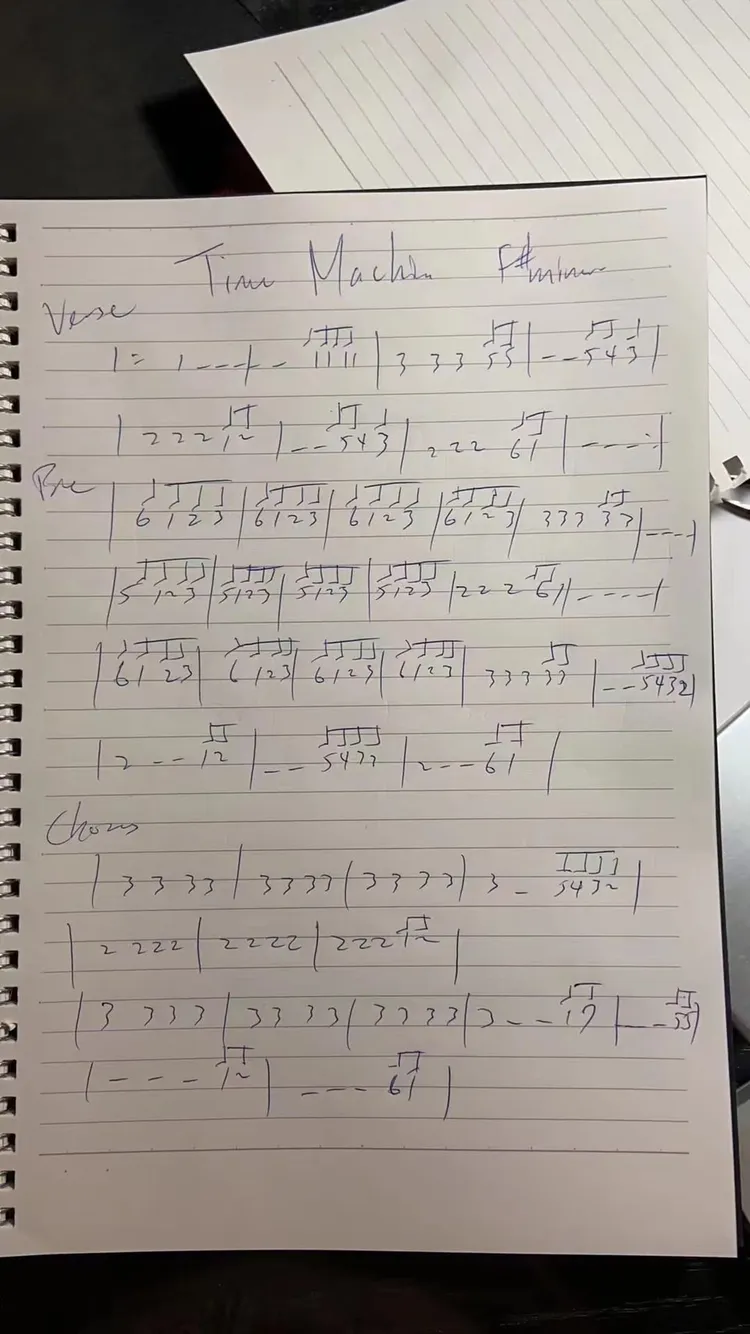 Time Machine F#minor
Verse
1= 1---|-- 1111 | 3 3 3 55 | -- 54 3 |
| 2 2 2 12 | -- 54 3 | 2 2 2 61 | ----:|
Pre | 6 123 | 6123 | 6123 | 6123 | 333 33 | ----|
| 5 123 | 5123 | 5123 | 5123 | 222 61 | ----|
| 6123 | 6123 | 6123 | 6123 | 333 33 | -- 5432 |
| 2 -- 12 | -- 5433 | 2 -- 61 |
Chorus
| 3 3 3 3 | 3 3 3 3 | 3 3 3 3 | 3 - 5432 |
| 2 222 | 2 2 2 2 | 222 12 |
| 3 3 3 3 | 3 3 3 3 | 3 3 3 3 | 3 -- 12 | --- 55 |
| --- 12 | --- 61 |